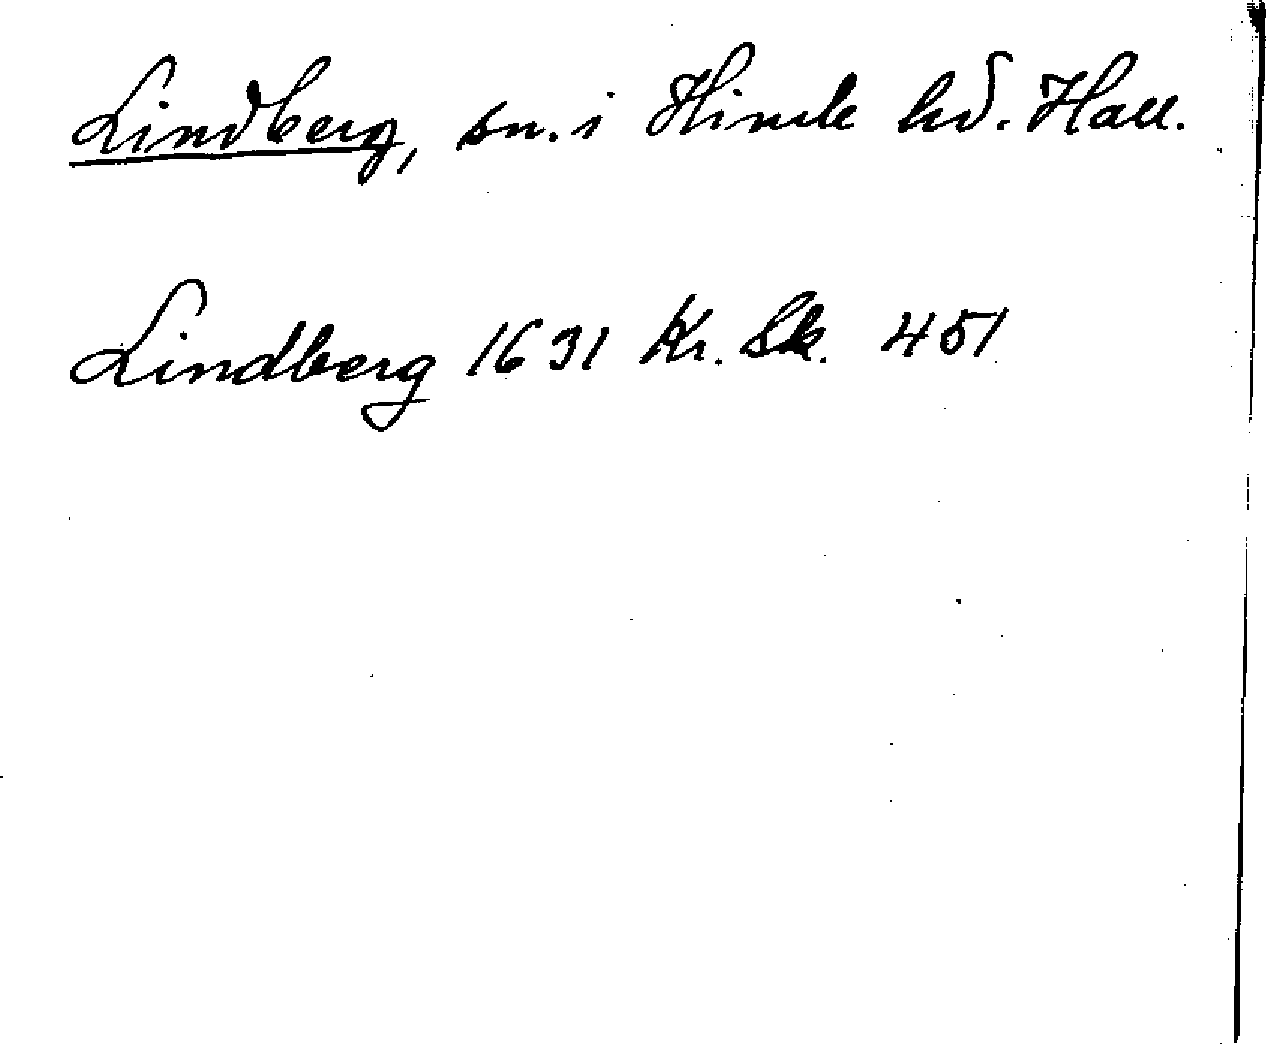 Lindberg, sn. i Himle hd. Hall.
Lindberg 1631 Kr. Sk. 451